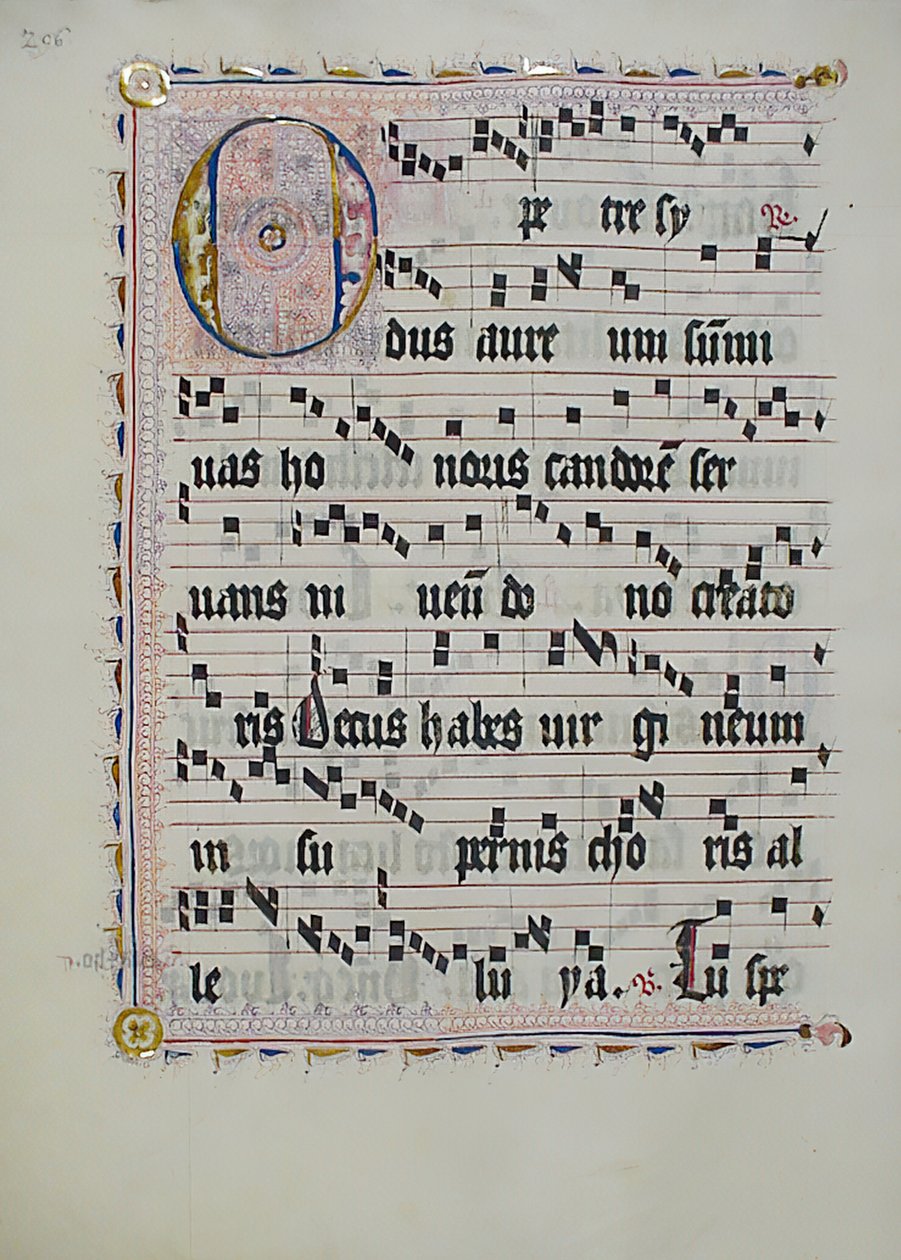 296
O pe tre sy ℟.
dus aure um sūmi
uas ho noris candorē ser
uans ni ueū do no creato
ris Decus habes uir gi neum
in su pernis cho ris al
le lu ya. ℣. Tu spe